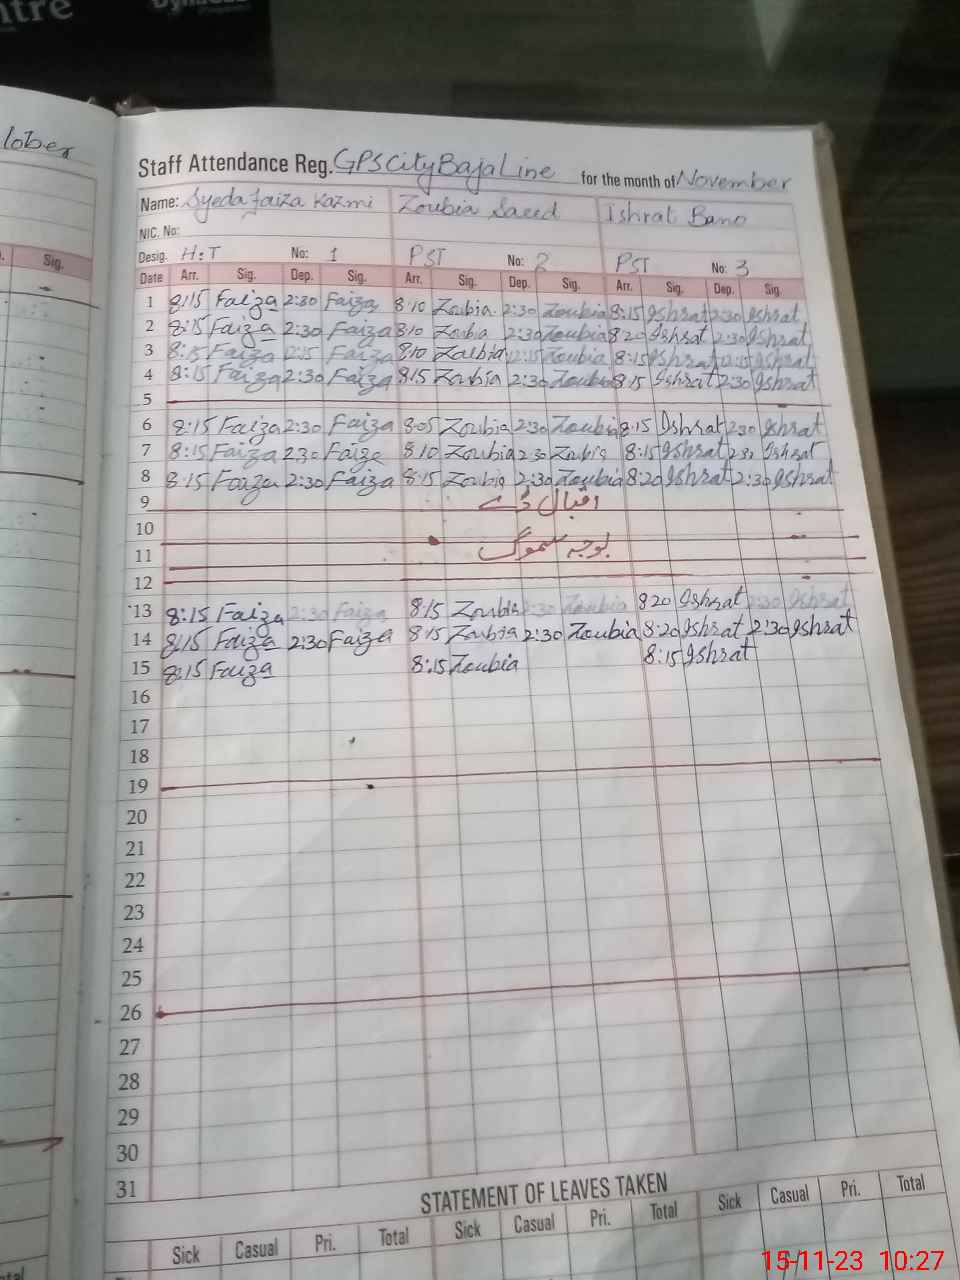 ntre
lober
Staff Attendance Reg. GPS City Baja Line for the month of November
Name: Syeda Faiza Kazmi Zoubia Saeed Ishrat Bano
NIC. No:
Desig. H:T No: 1 PST No: 2 PST No: 3
Sig.
Date Arr. Sig. Dep. Sig. Arr. Sig. Dep. Sig. Arr. Sig. Dep. Sig.
1 8:15 Faiza 2:30 Faiza 8:10 Zoubia 2:30 Zoubia 8:15 Ishrat 2:30 Ishrat
2 8:15 Faiza 2:30 Faiza 8:10 Zoubia 2:30 Zoubia 8:20 Ishrat 2:30 Ishrat
3 8:15 Faiza 12:15 Faiza 8:10 Zoubia 12:15 Zoubia 8:15 Ishrat 12:15 Ishrat
4 8:15 Faiza 2:30 Faiza 8:15 Zoubia 2:30 Zoubia 8:15 Ishrat 2:30 Ishrat
5
6 8:15 Faiza 2:30 Faiza 8:05 Zoubia 2:30 Zoubia 8:15 Ishrat 2:30 Ishrat
7 8:15 Faiza 2:30 Faiza 8:10 Zoubia 2:30 Zoubia 8:15 Ishrat 2:30 Ishrat
8 8:15 Faiza 2:30 Faiza 8:15 Zoubia 2:30 Zoubia 8:20 Ishrat 2:30 Ishrat
9 اقبال ڈے
10
11 بوجہ سموگ
12
13 8:15 Faiza 2:30 Faiza 8:15 Zoubia 2:30 Zoubia 8:20 Ishrat 2:30 Ishrat
14 8:15 Faiza 2:30 Faiza 8:15 Zoubia 2:30 Zoubia 8:20 Ishrat 2:30 Ishrat
15 8:15 Faiza 8:15 Zoubia 8:15 Ishrat
16
17
18
19
20
21
22
23
24
25
26
27
28
29
30
31
STATEMENT OF LEAVES TAKEN
Sick Casual Pri. Total Sick Casual Pri. Total Sick Casual Pri. Total
tal
15-11-23 10:27